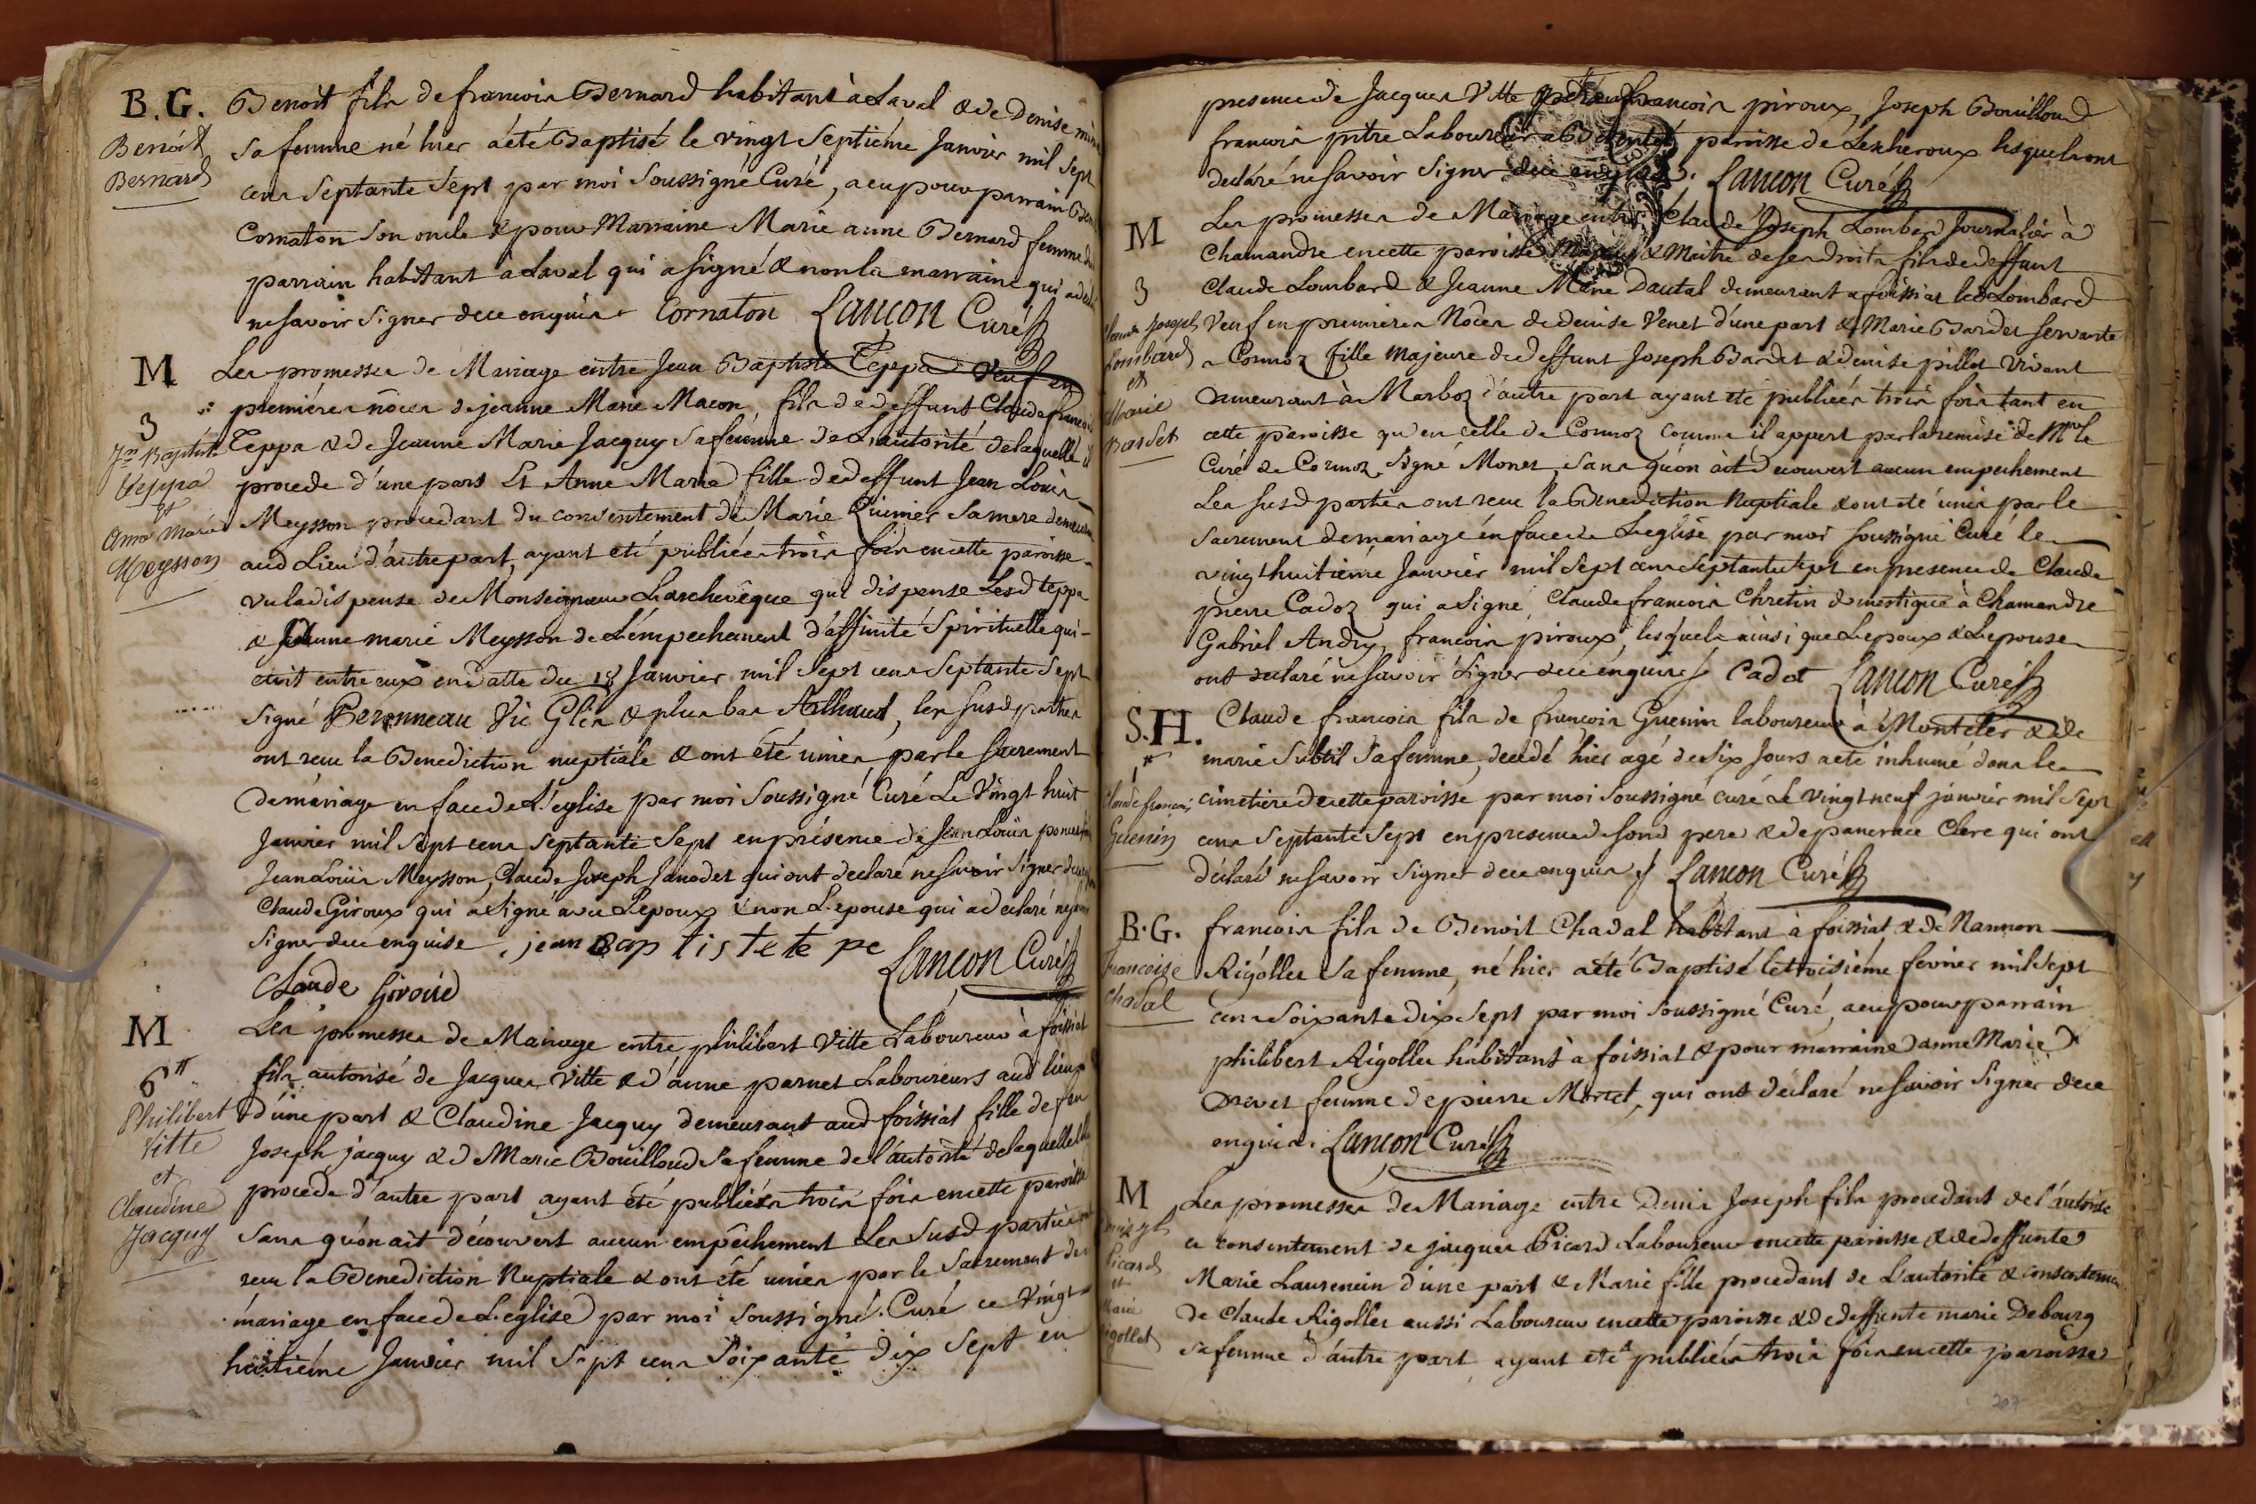 B.G.
Benoit
Bernard
Benoit fils de francois Bernard habitant à Laval & de Denise
sa femme né hier a été Baptisé le vingt Septiéme Janvier mil Sept
cens Septante Sept par moi Soussigné Curé, a eu pour parrain
Cornaton son oncle & pour Marraine Marie anne Bernard femme du
parrain habitant à Laval qui a signé & non la marraine qui a
ne savoir signer de ce enquise Cornaton Lançon Curé
M
3
Jn Baptiste
teppa
et
Anne Marie
Meysson
Les promesses de Mariage entre Jean Baptiste Teppa veuf en
premiéres nôces de jeanne Marie Macon, fils de deffunt Claude francois
Teppa & de Jeanne Marie Jacquy sa femme de L'autorité de laquelle il
procede d'une part Et Anne Marie fille de deffunt Jean Louis
Meysson procedant du consentement de Marie sa mere
aud Lieu d'autre part, ayant eté publiées trois fois en cette paroisse
vu la dispense de Monseigneur L'archevêque qui dispense Lesd teppa
& anne marie Meysson de L'empechement d'affinité Spirituelle qui
etoit entre eux en datte du 18 Janvier mil Sept cens Septante Sept
signé Peronneau Vic Glen & plus bas Alhaud, les susd parties
ont recu la Benediction nuptiale & ont été unies par le sacrement
de mariage en face de L'eglise par moi Soussigné Curé Le Vingt huit
Janvier mil Sept cens Septante Sept en présence de Jean Louis
Jean Louis Meysson, Claude Joseph Janodet qui ont declaré ne savoir signer
Claude Giroux qui a Signé avec L'epoux & non L'epouse qui a declaré ne
signer de ce enquise. jean Bap tis te te pe Lançon Curé
Claude Giroud
M
6
Philibert
Vitte
et
Claudine
Jacquy
Les promesses de Mariage entre philibert Vitte Laboureur à foissiat
fils autorisé de Jacques Vitte & d'anne parnet Laboureurs aud lieu
d'une part & Claudine Jacquy demeurant aud foissiat fille de feu
Joseph jacquy & de Marie Bouilloud sa femme de l'autorité de laquelle
procede d'autre part ayant été publiées trois fois en cette paroisse
sans qu'on ait découvert aucun empêchement Les Susd parties
recu la Benediction Nuptiale & ont été unies par le Sacrement de
mariage en face de L'eglise par moi Soussigné Curé ce Vingt
huitiéme Janvier mil Sept cens Soixante Dix Sept en
presence de Jacques Vitte francois piroux, Joseph Bouilloud
francois pitre Laboureur paroisse de Lescheroux lesquels ont
declaré ne savoir signer de ce enquis. Lançon Curé
M
3
Claude Joseph
Lombard
et
Marie
Bardet
Les promesses de Mariage entre Claude Joseph Lombard Journalier à
Chamandre en cette paroisse Majeur & Maitre de ses droits fils de deffunt
Claude Lombard & Jeanne Marie Dautal demeurant a foissiat led Lombard
Veuf en premieres Nôces de denise Venet d'une part & Marie Bardet servante
a Cormoz fille majeure de deffunt Joseph Bardet & denise pillot vivant
demeurant à Marboz d'autre part ayant été publiées trois fois tant en
cette paroisse qu'en celle de Cormoz comme il appert par la remise de Mr le
Curé de Cormoz Signé Monet sans qu'on ait decouvert aucun empechement
Les susd parties ont recu la Benediction Nuptiale & ont été unis par le
sacrement de mariage en face de L'eglise par moi soussigné Curé le
vingt huitiéme Janvier mil Sept cens Septante Sept en presence de Claude
pierre Cadoz qui a signé, Claude francois Chretin domestique à Chamandre
Gabriel Andry, francois piroux, lesquels ainsi que L'epoux & L'epouse
ont declaré ne savoir signer de ce enquis Cadot Lançon Curé
S.H.
1
Claude francois
Guenin
Claude francois fils de francois Guenin laboureur à Monteler & de
marie Subtil sa femme, decedé hier agé de six jours a été inhumé dans le
cimetiere de cette paroisse par moi Soussigné curé Le vingt neuf janvier mil Sept
cens Septante Sept en presence de sond pere & de pancrace Clerc qui ont
déclaré ne savoir signer de ce enquis Lançon Curé
B.G.
francoise
Chadal
francois fils de Benoit Chadal habitant à foissiat & de Nannon
Rigollet sa femme, né hier a été Baptisé le troisiéme fevrier mil Sept
cens Soixante dix Sept par moi Soussigné Curé, a eu pour parrain
philibert Rigollet habitant a foissiat & pour marraine anne Marie
Drevet femme de pierre Mortel, qui ont déclaré ne savoir signer de ce
enquis. Lançon Curé
M
Picard
et
Marie
Rigollet
Les promesses de Mariage entre Denis Joseph fils procedant de l'autorité
et consentement de jacques Picard Laboureur en cette paroisse & de deffunte
Marie Laurencin d'une part & Marie fille procedant de L'autorité & consentement
de Claude Rigollet aussi Laboureur en cette paroisse & de deffunte marie Debourg
sa femme d'autre part ayant eté publiées trois fois en cette paroisse
207